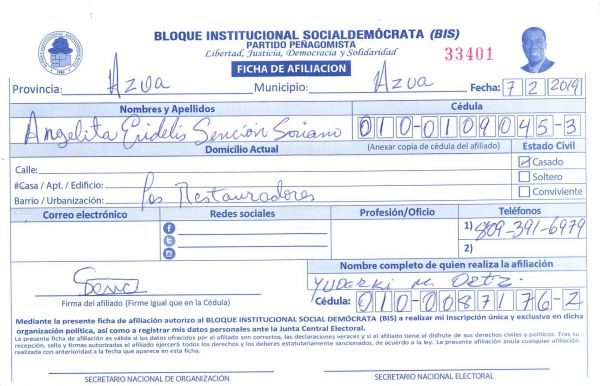 BLOQUE INSTITUCIONAL SOCIALDEMÓCRATA (BIS)
PARTIDO PEÑAGOMISTA
Libertad, Justicia, Democracia y Solidaridad
33401
FICHA DE AFILIACION
Provincia: Azua Municipio: Azua Fecha: 7 2 2019
Nombres y Apellidos Cédula
Angelita Eridelis Sención Soriano 010-0109045-3
Domicilio Actual (Anexar copia de cédula del afiliado) Estado Civil
Calle: Casado
#Casa / Apt. / Edificio: Soltero
Barrio / Urbanización: Los Restauradores Conviviente
Correo electrónico Redes sociales Profesión/Oficio Teléfonos
1) 809-391-6979
2)
Nombre completo de quien realiza la afiliación
Yuderki M. Ortz.
Firma del afiliado (Firme igual que en la Cédula) Cédula: 010-0087176-2
Mediante la presente ficha de afiliación autorizo al BLOQUE INSTITUCIONAL SOCIAL DEMÓCRATA (BIS) a realizar mi inscripción única y exclusiva en dicha
organización política, así como a registrar mis datos personales ante la Junta Central Electoral.
La presente ficha de afiliación es válida si los datos ofrecidos por el afiliado son correctos, las declaraciones veraces y si el afiliado tiene el disfrute de sus derechos civiles y políticos. Tras su
recepción, sello y firmas autorizadas el afiliado ejercerá todos los derechos y los deberes estatutariamente sancionados, de acuerdo a la ley. La presente afiliación anula cualquier afiliación
realizada con anterioridad a la fecha que aparece en esta ficha.
SECRETARIO NACIONAL DE ORGANIZACIÓN SECRETARIO NACIONAL ELECTORAL